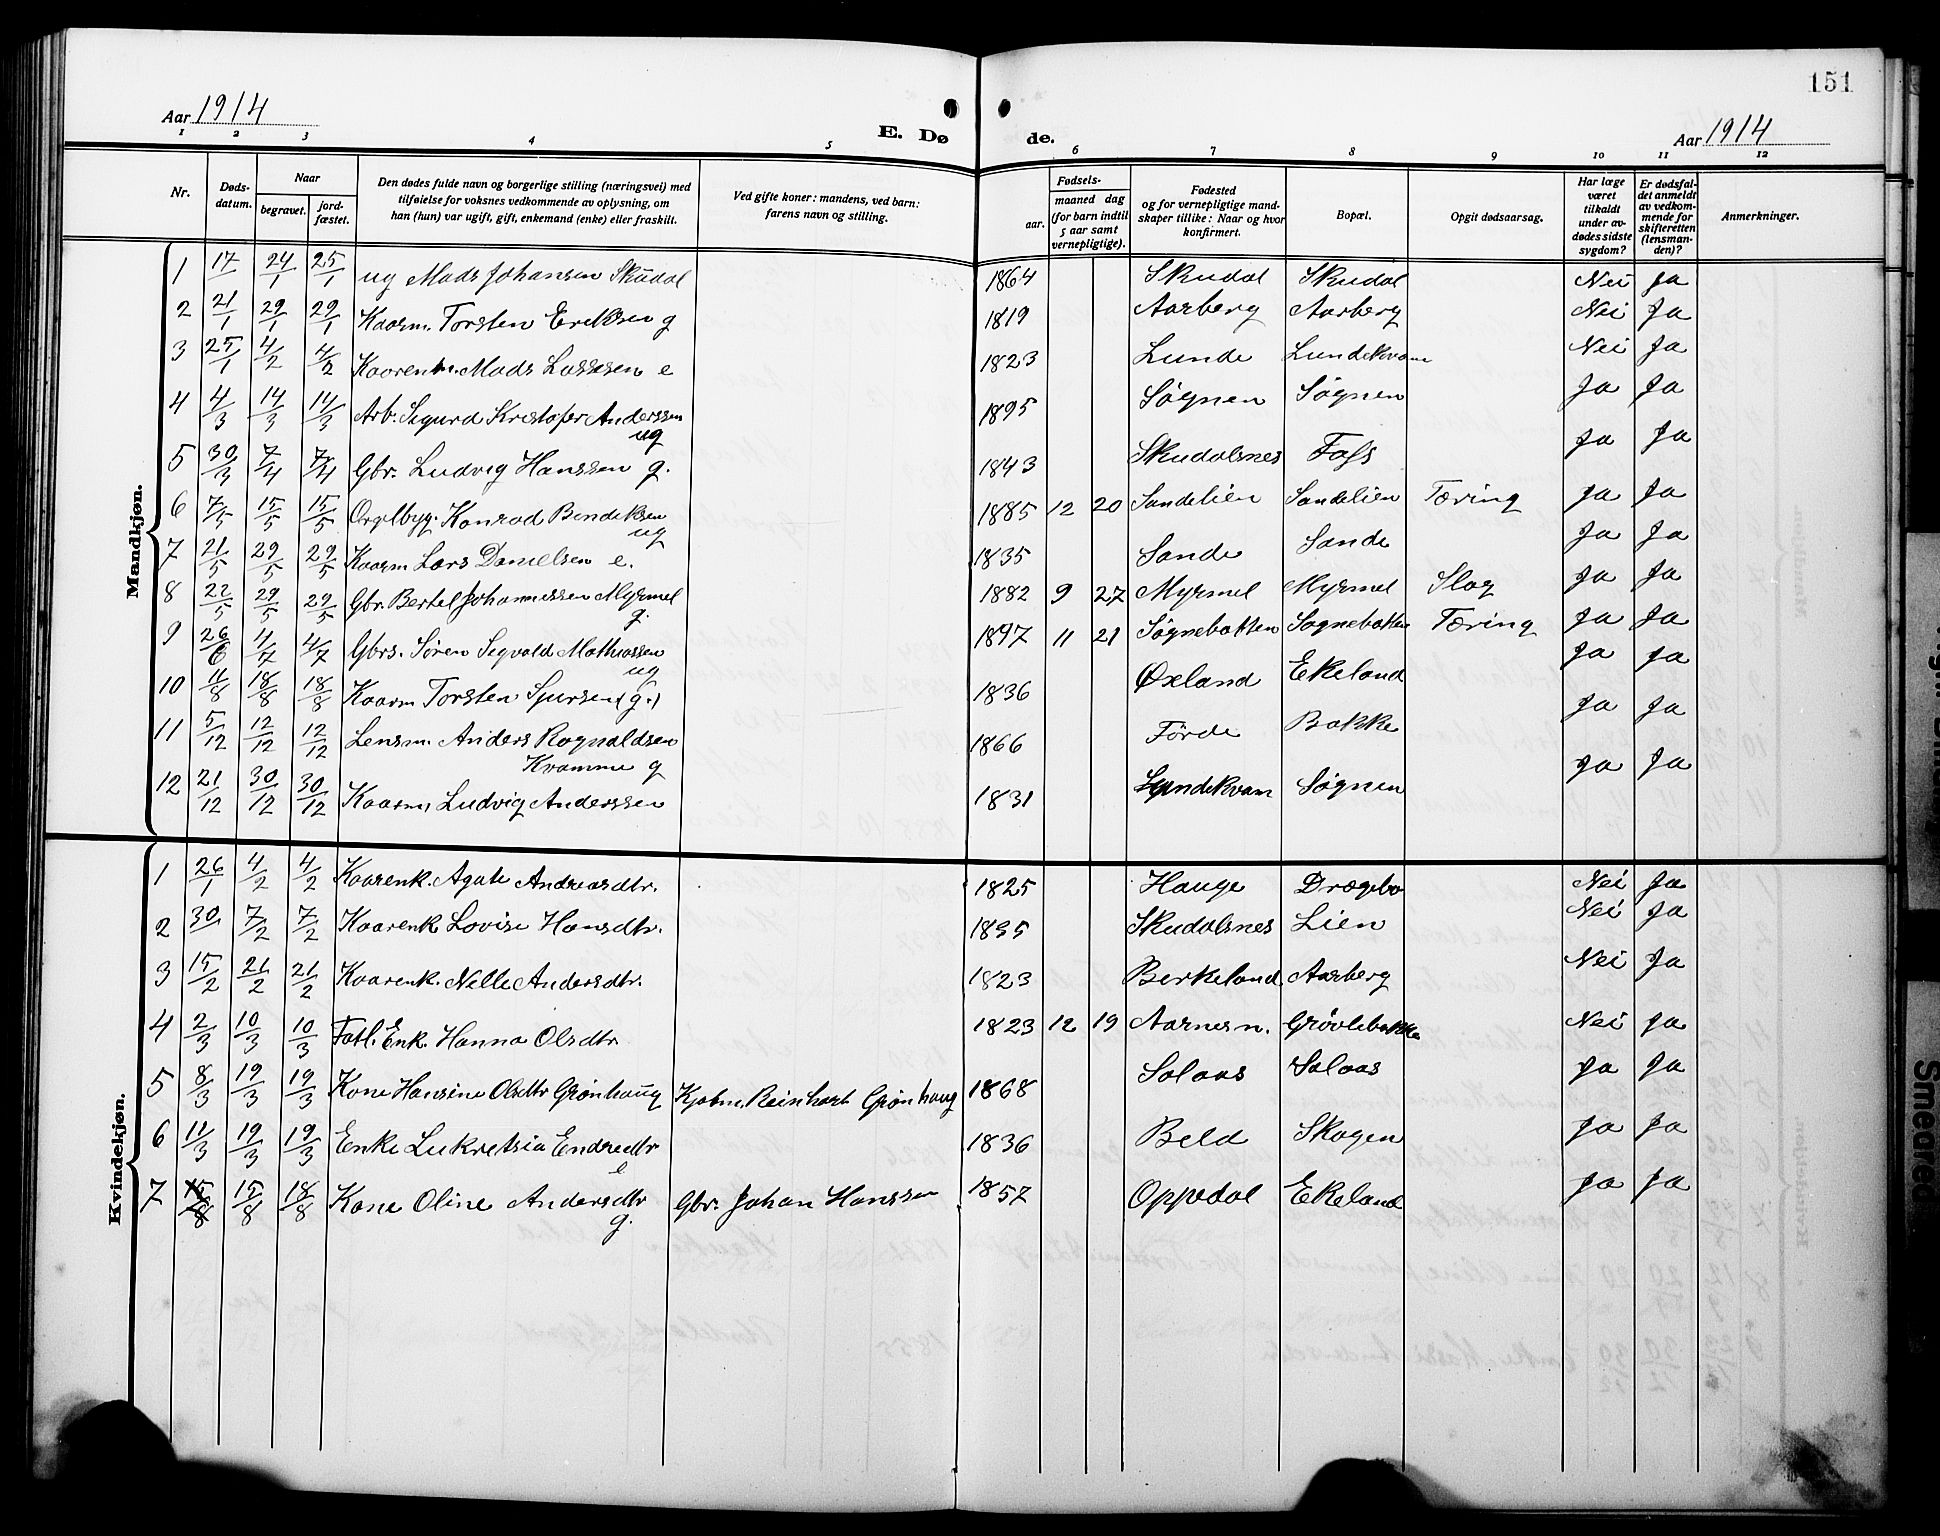 151
Aar 1914
E. Dø de.
Aar 1914
1 2 3 4 5 6 7 8 9 10 11 12
Nr.
Døds-
datum.
Naar
begravet.
jord-
fæstet.
Den dødes fulde navn og borgerlige stilling (næringsvei) med
tilføielse for voksnes vedkommende av oplysning, om
han (hun) var ugift, gift, enkemand (enke) eller fraskilt.
Ved gifte koner: mandens, ved barn:
farens navn og stilling.
Fødsels-
aar.
maaned dag
(for barn indtil
5 aar samt
vernepligtige).
Fødested
og for vernepligtige mand-
skaper tillike: Naar og hvor
konfirmert.
Bopæl.
Opgit dødsaarsag.
Har læge
været
tilkaldt
under av-
dødes sidste
sygdom?
Er dødsfal-
det anmeldt
av vedkom-
mende for
skifteretten
(lensman-
den)?
Anmerkninger.
Mandkjøn.
1 17/1 24/1 25/1 ug Mads Johansen Skudal 1864 Skudal Skudal Nei Ja
2 21/1 29/1 29/1 Kaarm. Torsten Eriksen g 1819 Aarberg Aarberg Nei Ja
3 25/1 4/2 4/2 Kaarenkm. Mads Lasssen e 1823 Lunde Lundekvam Nei Ja
4 4/3 14/3 14/3 Arb. Sigurd Kristofer Anderssen ug 1895 Søgnen Søgnen Ja Ja
5 30/3 7/4 7/4 Gbr. Ludvig Hanssen g. 1843 Skudalsnes Foss Ja Ja
6 7/5 15/5 15/5 Orglbyg. Konrad Bendiksen ug 1885 12 20 Sandelien Sandelien Tæring Ja Ja
7 21/5 29/5 29/5 Kaarm Lars Danielsen e. 1835 Sande Sande Ja Ja
8 22/5 29/5 29/5 Gbr. Bertel Johannessen Myrmel g. 1882 9 27 Myrmel Myrmel Slag Ja Ja
9 26/6 4/7 4/7 Gbrs. Søren Sigvald Mathiassen ug 1897 11 21 Søgnebotten Søgnebotten Tæring Ja Ja
10 11/8 18/8 18/8 Kaarm Torsten Sjursen (g.) 1836 Oxland Ekeland Ja Ja
11 5/12 12/12 12/12 Lensm. Anders Ragnaldsen Kramme g 1866 Førde Bakke Ja Ja
12 21/12 30/12 30/12 Kaarm. Ludvig Anderssen 1831 Lundekvam Søgnen Ja Ja
Kvindekjøn.
1 26/1 4/2 4/2 Kaarenk. Agate Andreasdtr. 1825 Hauge Drægebo Nei Ja
2 30/ 7/2 7/2 Kaarenk Lovise Hansdtr. 1835 Skudalsnes Lien Nei Ja
3 15/2 21/2 21/2 Kaarenk. Nille Andersdtr. 1823 Berkeland Aarberg Nei Ja
4 2/3 10/3 10/3 Fatl. Enk. Hanna Olsdtr 1823 12 19 Aarnesn. Grøvlebakke Nei Ja
5 8/3 19/3 19/3 Kone Hansine Olsdtr Grønhaug Kjøbm. Reinhart Grønhaug 1868 Solaas Solaas Ja Ja
6 11/3 19/3 19/3 Enke Lukretsia Endredtr e 1836 Beld Skogen Ja Ja
7 15/8 15/8 18/8 Kone Oline Andersdtr g. Gbr. Johan Hanssen 1857 Oppedal Ekeland Ja Ja